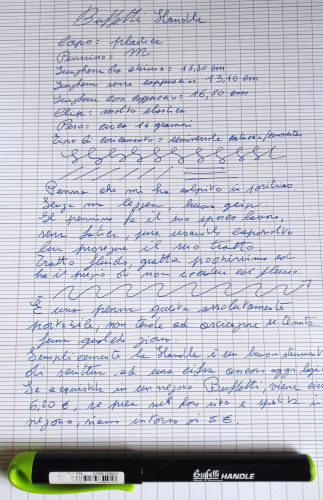 Buffetti Handle
Corpo: plastica
Pennino: M
Lunghezza da chiusa: 15,30 cm
Lunghezza senza cappuccio: 13,10 cm
Lunghezza con cappuccio: 16,50 cm
Clip: molto elastica
Peso: circa 14 grammi
Tipo di caricamento: universale cartucce/converter
Penna che mi ha colpito in positivo.
Senza ma leggera, buon grip.
Il pennino fa il suo sporco lavoro,
senza fatica, pure usandolo capovolto
lui prosegue il suo tratto.
Tratto fluido, gratta pochissimo ed
ha il pregio di non eccedere col flusso.
È una penna questa assolutamente
portabile, non tende ad asciugare se tenuta
ferma qualche giorno.
Semplicemente la Handle è un buon strumento
di scrittura, ad una cifra ancora oggi
Se acquistata in un negozio Buffetti, viene
6,20 €, se presa nel loro sito e spedita in
negozio, siamo intorno ai 5 €.
Buffetti HANDLE